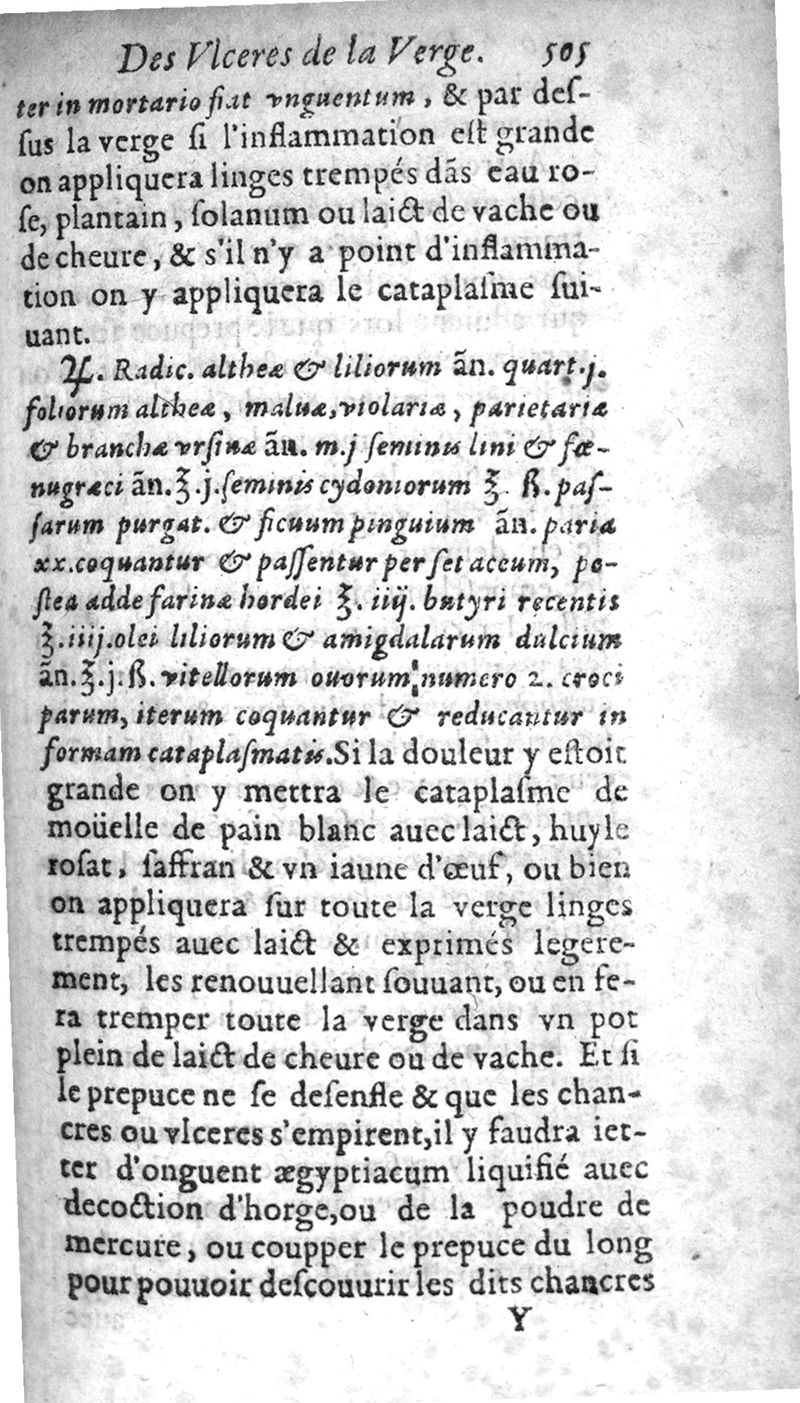 Des Vlceres de la Verge. 505
ter in mortario fiat vnguentum, & par deſ-
ſus la verge ſi l'inflammation eſt grande
on appliquera linges trempés dãs eau ro-
ſe, plantain, ſolanum ou laict de vache ou
de cheure, & s'il n'y a point d'inflamma-
tion on y appliquera le cataplaſme ſui-
uant.
♃. Radic. altheæ & liliorum ãn. quart.j.
foliorum altheæ, maluæ, violariæ, parietariæ
& branchæ vrſinæ ãn. m.j ſeminis lini & fœ-
nugræci ãn.℥.j.ſeminis cydoniorum ℥. ß.paſ-
ſarum purgat. & ficuum pinguium ãn. paria
xx.coquantur & paſſentur per ſetaceum, po-
ſtea adde farinæ hordei ℥. iiij. butyri recentis
℥.iiij.olei liliorum & amigdalarum dulcium
ãn.℥.j.ß.vitellorum ouorum numero 2. croci
parum, iterum coquantur & reducantur in
formam cataplaſmatis.Si la douleur y eſtoit
grande on y mettra le cataplaſme de
moüelle de pain blanc auec laict, huyle
roſat, ſaffran & vn iaune d'œuf, ou bien
on appliquera ſur toute la verge linges
trempés auec laict & exprimés legere-
ment, les renouuellant ſouuant, ou en fe-
ra tremper toute la verge dans vn pot
plein de laict de cheure ou de vache. Et ſi
le prepuce ne ſe deſenfle & que les chan-
cres ou vlceres s'empirent,il y faudra iet-
ter d'onguent ægyptiacum liquifié auec
decoction d'horge,ou de la poudre de
mercure, ou coupper le prepuce du long
pour pouuoir deſcouurir les dits chancres
Y